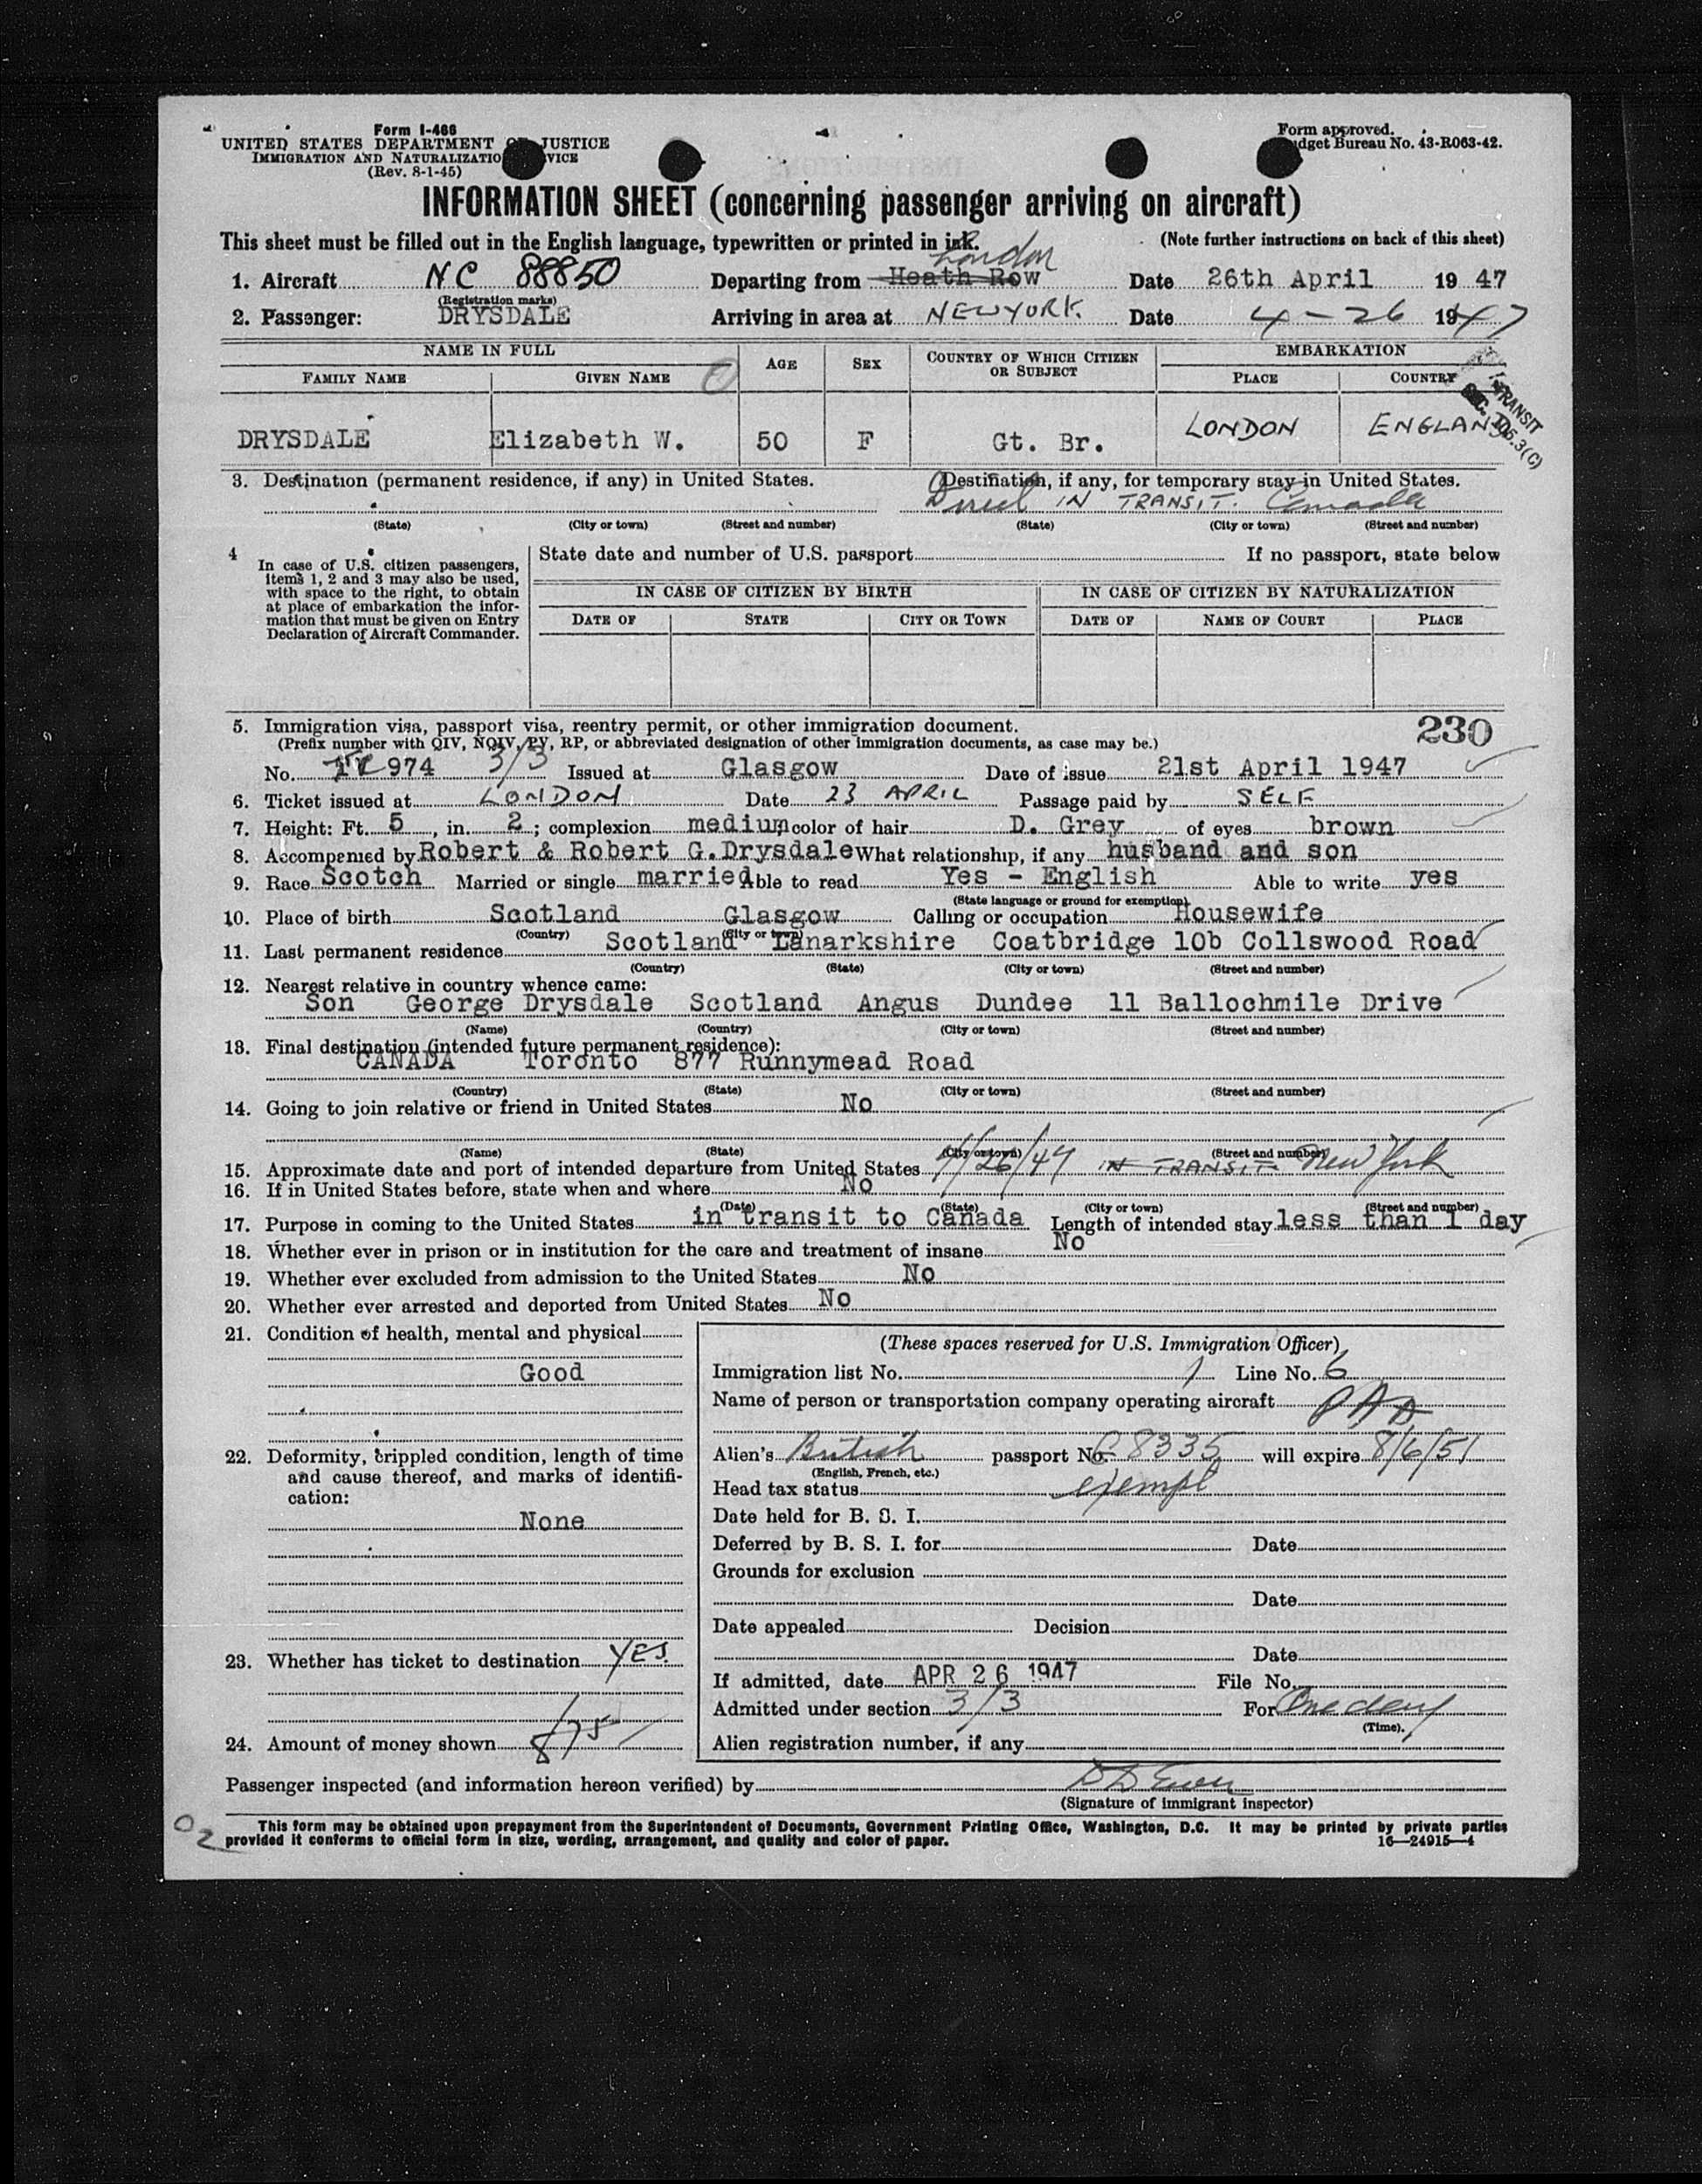 Form I-466
UNITED STATES DEPARTMENT OF JUSTICE
IMMIGRATION AND NATURALIZATIO VICE
(Rev. 8-1-45)
Form approved.
dget Bureau No. 43-R063-42.
INFORMATION SHEET (concerning passenger arriving on aircraft)
This sheet must be filled out in the English language, typewritten or printed in ink.
(Note further instructions on back of this sheet)
London
1. Aircraft NC 88850 Departing from Heath Row Date 26th April 19 47
(Registration marks)
2. Passenger: DRYSDALE Arriving in area at NEW YORK. Date 4-26 1947
NAME IN FULL AGE SEX COUNTRY OF WHICH CITIZEN OR SUBJECT EMBARKATION
FAMILY NAME GIVEN NAME PLACE COUNTRY
TRANSIT
DRYSDALE Elizabeth W. 50 F Gt. Br. LONDON ENGLAND
3. Destination (permanent residence, if any) in United States. Destination, if any, for temporary stay in United States.
Direct IN TRANSIT. Canada
(State) (City or town) (Street and number) (State) (City or town) (Street and number)
4 In case of U.S. citizen passengers, items 1, 2 and 3 may also be used, with space to the right, to obtain at place of embarkation the information that must be given on Entry Declaration of Aircraft Commander.
State date and number of U.S. passport If no passport, state below
IN CASE OF CITIZEN BY BIRTH IN CASE OF CITIZEN BY NATURALIZATION
DATE OF STATE CITY OR TOWN DATE OF NAME OF COURT PLACE
5. Immigration visa, passport visa, reentry permit, or other immigration document. 230
(Prefix number with QIV, NQIV, PV, RP, or abbreviated designation of other immigration documents, as case may be.)
No. 974 3/3 Issued at Glasgow Date of issue 21st April 1947
6. Ticket issued at LONDON Date 23 APRIL Passage paid by SELF
7. Height: Ft. 5, in. 2; complexion medium color of hair D. Grey of eyes brown
8. Accompanied by Robert & Robert G. Drysdale What relationship, if any husband and son
9. Race Scotch Married or single married Able to read Yes - English Able to write yes
(State language or ground for exemption)
10. Place of birth Scotland Glasgow Calling or occupation Housewife
(Country) (City or town)
11. Last permanent residence Scotland Lanarkshire Coatbridge 10b Collswood Road
(Country) (State) (City or town) (Street and number)
12. Nearest relative in country whence came:
Son George Drysdale Scotland Angus Dundee 11 Ballochmile Drive
(Name) (Country) (City or town) (Street and number)
13. Final destination (intended future permanent residence):
CANADA Toronto 877 Runnymead Road
(Country) (State) (City or town) (Street and number)
14. Going to join relative or friend in United States No
(Name) (State) (City or town) (Street and number)
15. Approximate date and port of intended departure from United States 4/26/47 IN TRANSIT New York
16. If in United States before, state when and where No
(Date) (State) (City or town) (Street and number)
17. Purpose in coming to the United States in transit to Canada Length of intended stay less than 1 day
18. Whether ever in prison or in institution for the care and treatment of insane No
19. Whether ever excluded from admission to the United States No
20. Whether ever arrested and deported from United States No
21. Condition of health, mental and physical
Good
22. Deformity, crippled condition, length of time
and cause thereof, and marks of identifi-
cation:
None
23. Whether has ticket to destination YES.
24. Amount of money shown 875
(These spaces reserved for U.S. Immigration Officer)
Immigration list No. 1 Line No. 6
Name of person or transportation company operating aircraft PAA
Alien's British passport No. C 8335 will expire 8/6/51
(English, French, etc.)
Head tax status exempt
Date held for B. S. I.
Deferred by B. S. I. for Date
Grounds for exclusion
Date
Date appealed Decision
Date
If admitted, date APR 26 1947 File No.
Admitted under section 3/3 For One day
(Time).
Alien registration number, if any
Passenger inspected (and information hereon verified) by
(Signature of immigrant inspector)
This form may be obtained upon prepayment from the Superintendent of Documents, Government Printing Office, Washington, D.C. It may be printed by private parties
provided it conforms to official form in size, wording, arrangement, and quality and color of paper. 16—24915-4